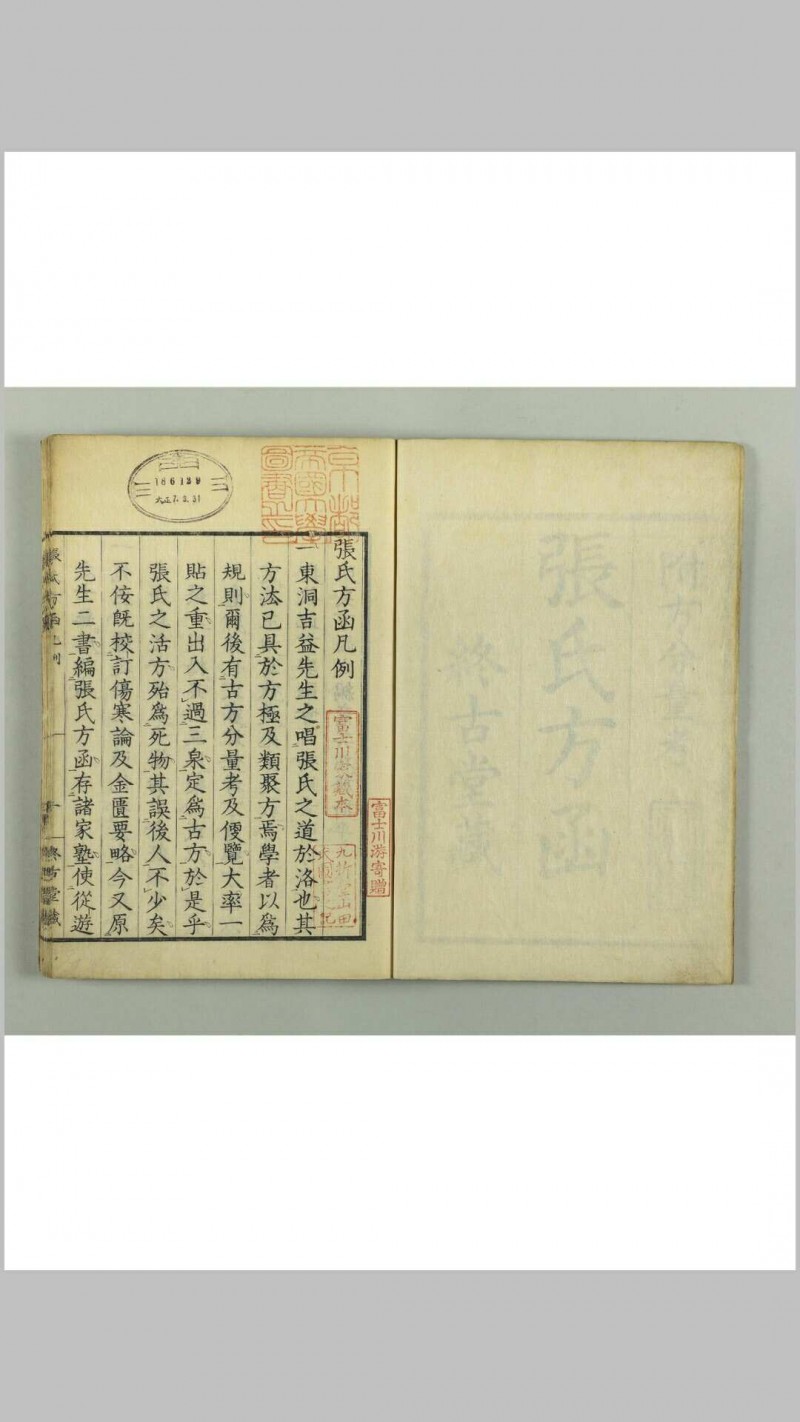 張氏方函凡例
一東洞吉益先生之唱張氏之道於洛也其
方法已具於方極及類聚方焉學者以爲
規則爾後有古方分量考及便覽大率一
貼之重出入不過三泉定爲古方於是乎
張氏之活方殆爲死物其誤後人不少矣
不佞旣校訂傷寒論及金匱要略今又原
先生二書編張氏方函存諸家塾使從遊
富士川游寄贈
京都
帝國大學
圖書之印
186129
大正7.3.31
張氏方函